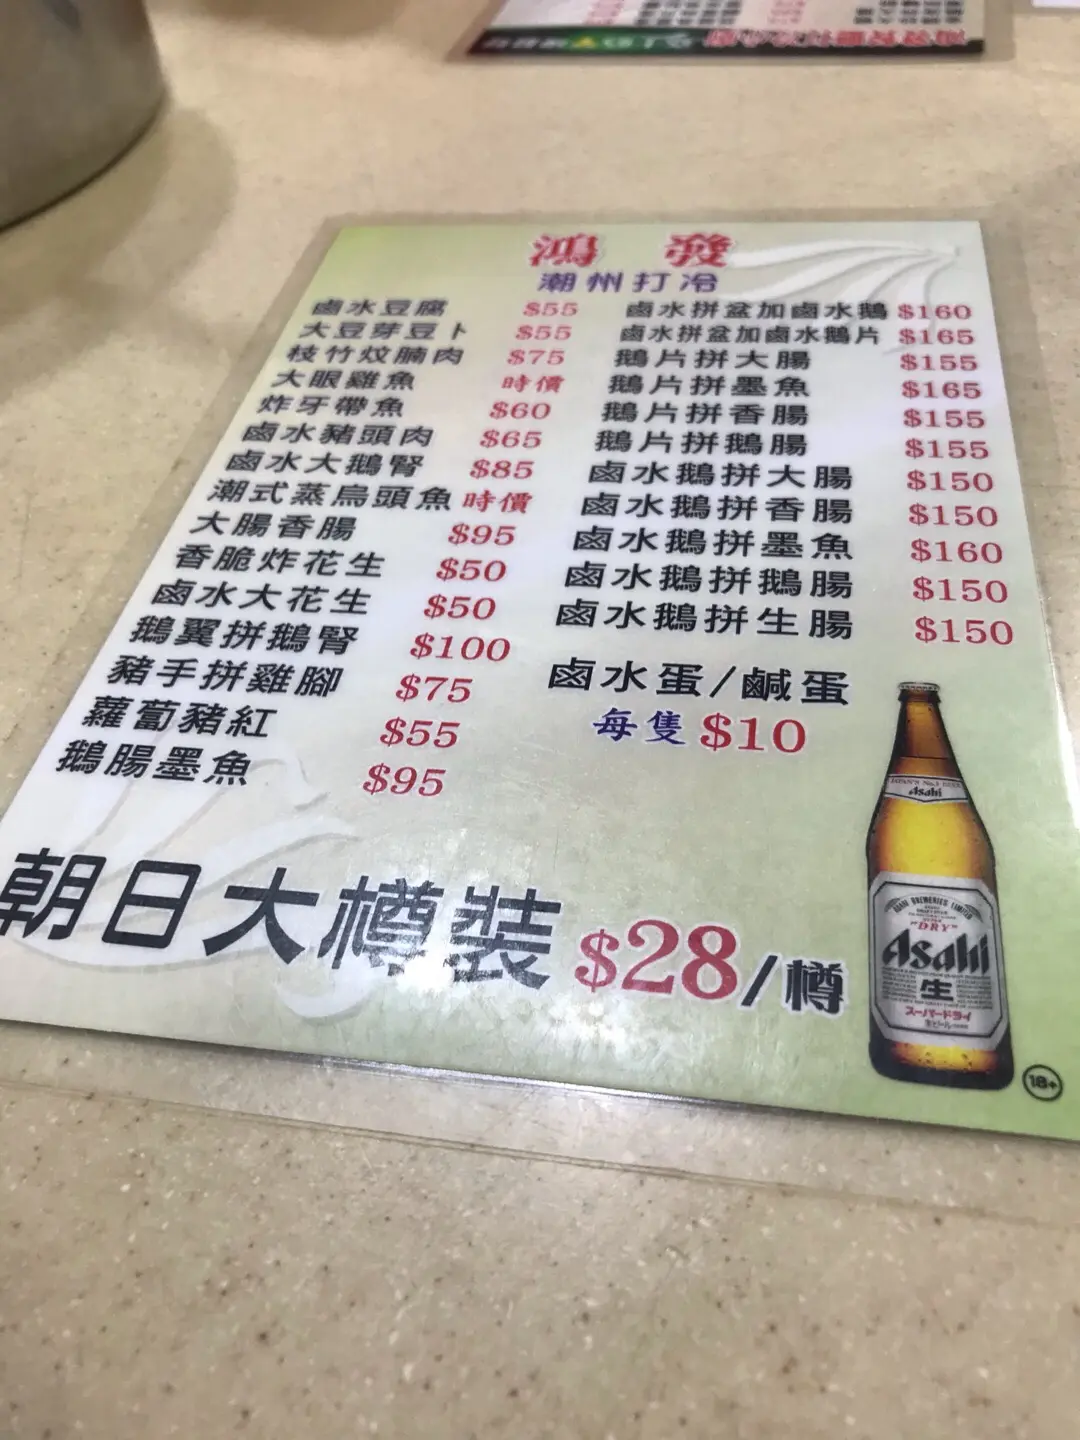 鴻發
潮州打冷
鹵水豆腐 $55
大豆芽豆卜 $55
枝竹炆腩肉 $75
大眼雞魚 時價
炸牙帶魚 $60
鹵水豬頭肉 $65
鹵水大鵝腎 $85
潮式蒸烏頭魚 時價
大腸香腸 $95
香脆炸花生 $50
鹵水大花生 $50
鵝翼拼鵝腎 $100
豬手拼雞腳 $75
蘿蔔豬紅 $55
鵝腸墨魚 $95
鹵水拼盆加鹵水鵝 $160
鹵水拼盆加鹵水鵝片 $165
鵝片拼大腸 $155
鵝片拼墨魚 $165
鵝片拼香腸 $155
鵝片拼鵝腸 $155
鹵水鵝拼大腸 $150
鹵水鵝拼香腸 $150
鹵水鵝拼墨魚 $160
鹵水鵝拼鵝腸 $150
鹵水鵝拼生腸 $150
鹵水蛋/鹹蛋
每隻 $10
朝日大樽裝 $28/樽
JAPAN'S No.1 BEER
Asahi
ASAHI BREWERIES LIMITED
"DRY"
Asahi
生
スーパードライ
18+